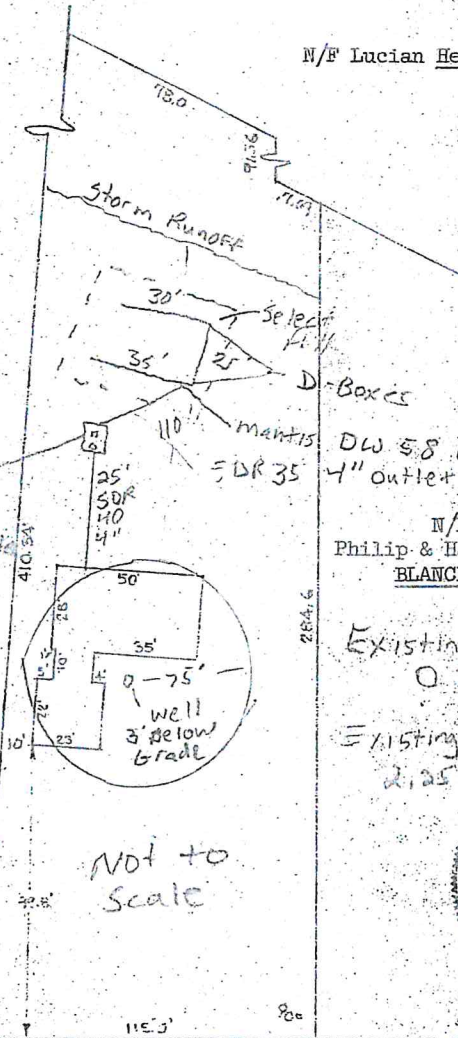 N/F Lucian He
78.0
91.36
Storm Runoff
30'
Select
Fill
35'
25'
D-Boxes
mantis
DW 58
110'
SDR 35
4" outlet
25'
SDR
40
4"
N/
Philip & H
BLANC
410.54
284.6
50'
28'
35'
10'
4'
0-75'
well
3' Below
Grade
22'
10'
23'
Existin
O
Existing
2.25
Not to
Scale
115.5'